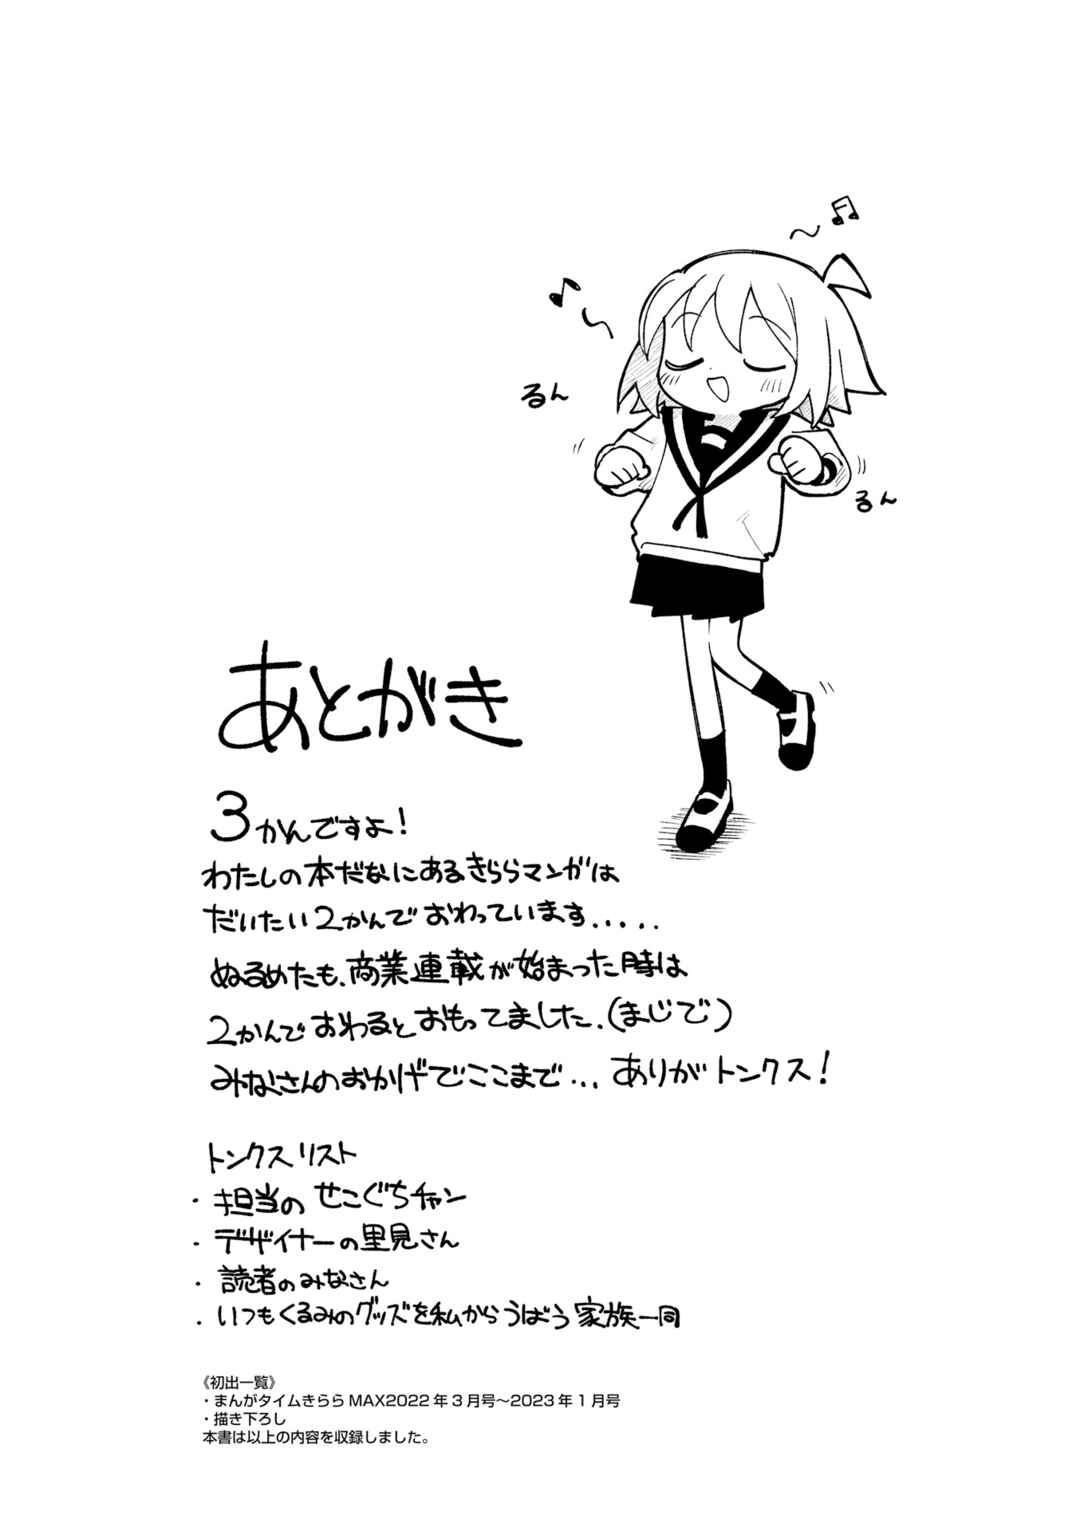 るん
るん
あとがき
3かんですよ!
わたしの本だなにあるきららマンガは
だいたい2かんでおわっています.....
ぬるめたも、商業連載が始まった時は
2かんでおわるとおもってました.(まじで)
みなさんのおかげでここまで...ありがトンクス!
トンクスリスト
・担当のせこぐちチャン
・デザイナーの里見さん
・読者のみなさん
・いつもくるみのグッズを私からうばう家族一同
《初出一覧》
・まんがタイムきららMAX2022年3月号～2023年1月号
・描き下ろし
本書は以上の内容を収録しました。